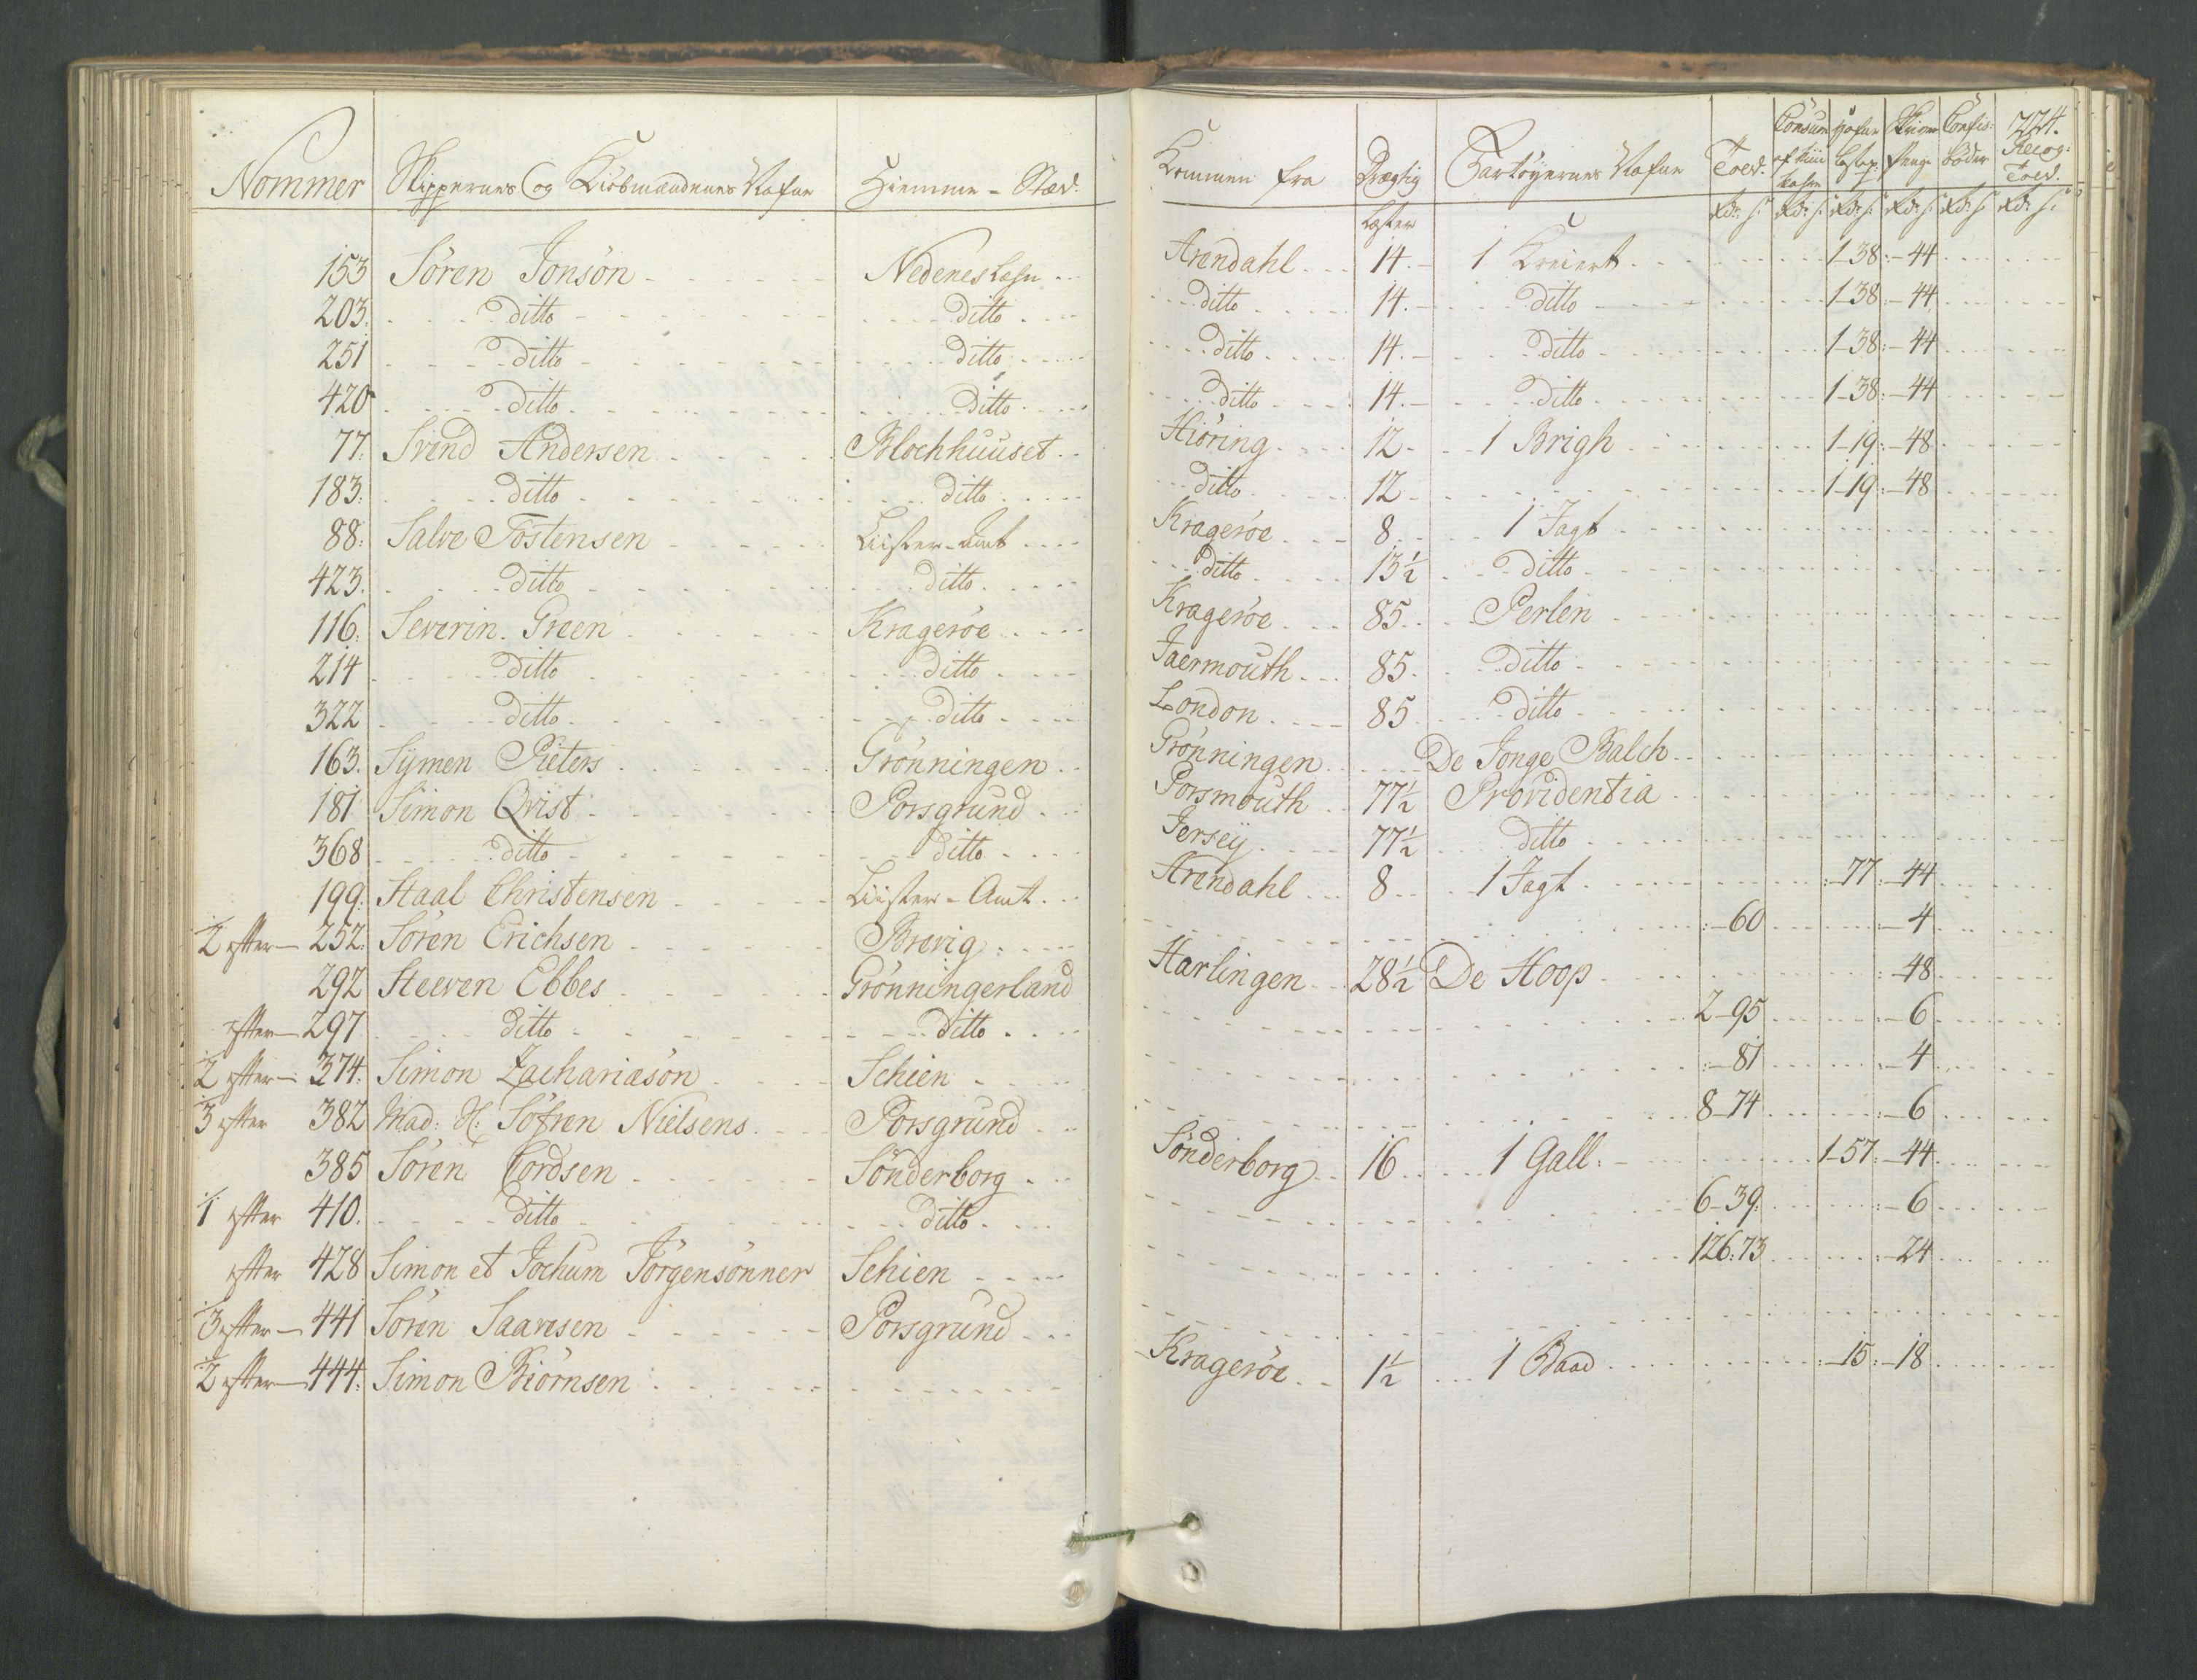 224.
Nommer Skippernes og Kiöbmændenes Nafne Hiemme-Stæd. Kommen fra Drægtig Fartöyernes Nafne Told. Consum: Hafne Skriver Confis: Recog:
penge Böder Told.
Læster Rdr s: Rdr s: Rdr s: Rdr s: Rdr s: Rdr s:
153 Sören Jonsön Nedenes Lehn Arendahl 14. 1 Kreiert 1-38:-44
203. ditto ditto ditto 14. ditto 1-38:-44
251 ditto ditto ditto 14. ditto 1-38:-44
420 ditto ditto ditto 14. ditto 1-38:-44
77. Svend Andersen Blochhuuset Hiöring 12 1 Brigh 1-19:-48
183: ditto ditto ditto 12 1-19:-48
88: Salve Tostensen Liister-Amt Krageröe 8 1 Jagt
423. ditto ditto ditto 13½ ditto
116: Severin Green Krageröe Krageröe 85. Perlen
214 ditto ditto Jaermouth 85. ditto
322 ditto ditto London 85 ditto
163. Sÿmen Pieters Grönningen Grönningen De Jonge Balch
181 Simon Qvist Porsgrund Porsmouth 77½ Providentia
368 ditto ditto Jerseÿ 77½ ditto
199: Staal Christensen Liister-Amt Arendahl 8 1 Jagt :-77:-44
2 efter 252: Sören Erichsen Brevig :-60 :-4
292 Steeven Ebbes Grönningerland Harlingen 28½ De Hoop :-48
efter 297 ditto ditto 2-95 :-6
2 efter 374: Simon Zachariasön Schien :-81 :-4
3 efter 382 Mad: Sl: Söfren Nielsens Porsgrund 8-74 :-6
385 Sören Cordsen Sönderborg Sönderborg 16 1 Gall: 1-57:-44
1 efter 410. ditto ditto 6-39 :-6
efter 428 Simon et Jochum Jörgensönner Schien 126:73 :-24
3 efter 441 Sören Saavesen Porsgrund
2 efter 444: Simon Biörnsen Krageröe 1½ 1 Baad :-15:-18